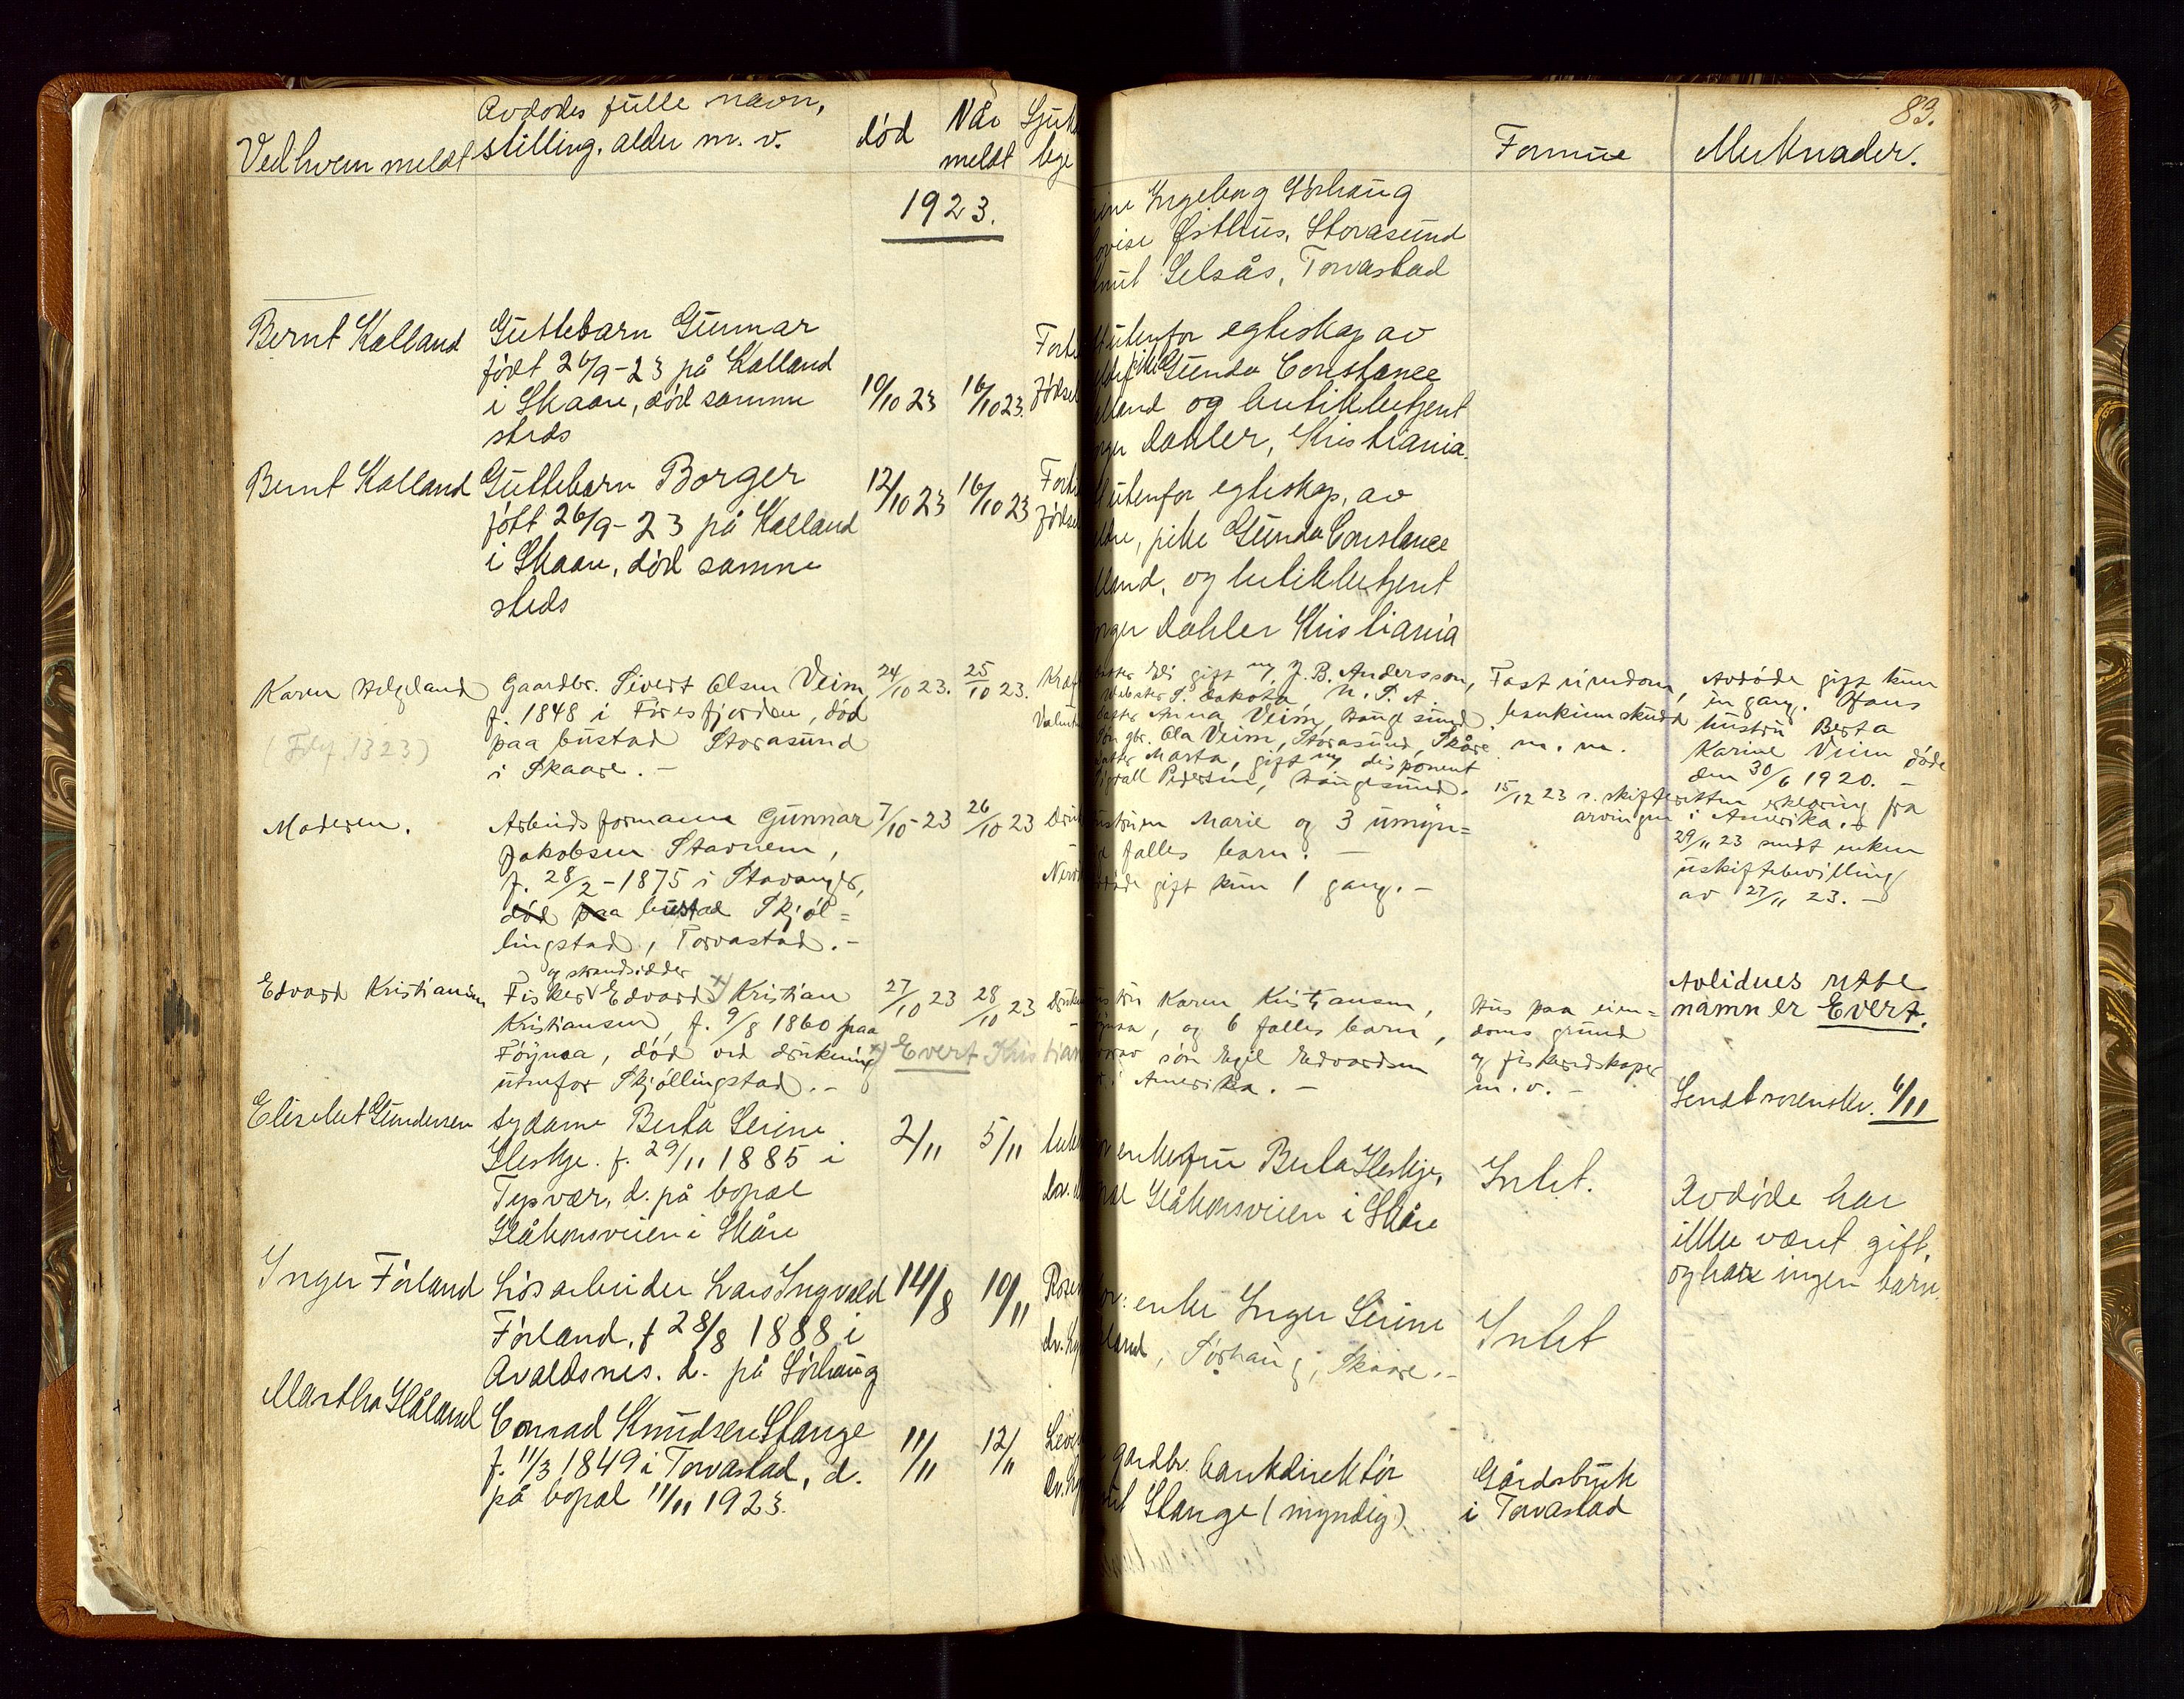 83.
Ved hvem meldt
Avdødes fulle navn,
stilling, alder m. v.
død
Når
meldt
Formue
Merknader.
1923.
Ingeborg Sørhaug
Østhus, Storasund
Selsås, Torvastad
Bernt Kalland
Guttebarn Gunnar
født 26/9-23 på Kalland
i Skaare, død samme
steds
10/10 23
16/10 23.
utenfor egteskap av
pike Gunda Constance
og butikkbetjent
Dahler, Kristiania.
Bernt Kalland
Guttebarn Borger
født 26/9-23 på Kalland
i Skaare, død samme
steds
12/10 23
16/10 23
utenfor egteskap, av
pike Gunda Constance
og butikkbetjent
Dahler Kristiania
Karen Helgeland
Gaardbr. Sivert Olsen Veim,
f. 1848 i Føresfjorden, død
paa bustad Storasund
i Skaare. -
24/10 23.
25/10 23.
gift m/ J. B. Andersson,
Webster S. Dakota N. S. A
Anna Veim, Haugesund
gbr. Ola Veim, Storasund, Skåre
Marta, gift m/ disponent
Pedersen, Haugesund.
Fast eiendom,
bankinnskudd
m. m.
Avdøde gift kun
en gang. Hans
hustru Berta
Karine Veim døde
den 30/6 1920. -
15/12 23 s. skifteretten erklæring fra
arvingen i Amerika. -
Moderen.
Arbeidsformann Gunnar
Jakobsen Stavnem,
f. 28/2-1875 i Stavanger,
død paa bustad Skjøl=
lingstad, Torvastad. -
7/10-23
26/10 23
Marie og 3 umyn=
felles barn. -
gift kun 1 gang. -
29/11 23 sendt enken
uskiftebevilling
av 27/11 23. -
Edvard Kristiansen
og strandsidder
Fisker Edvard x) Kristian
Kristiansen, f. 9/8 1860 paa
Føynaa, død ved drukning
utenfor Skjøllingstad. -
27/10 23
28/10 23
x) Evert Kristian
Karen Kristiansen,
og 6 felles barn,
søn Egil Edvardsen
i Amerika. -
Hus paa eien=
doms grund
og fiskeredskaper
m. v. -
Avlidnes rette
namn er Evert.
Sendt sorenskr. 6/11
Elisebet Gundersen
Sydame Berta Serine
Heskje. f. 29/11 1885 i
Tysvær, d. på bopæl
Håkonsveien i Skåre
2/11
5/11
enkefru Berta Heskje,
Håkonsveien i Skåre
Intet.
Avdøde har
ikke vært gift,
og har ingen barn.
Inger Førland
Løsarbeider Lars Ingvald
Førland, f 28/8 1888 i
Avaldsnes. d. på Sørhaug
14/8
10/11
enke Inger Serine
Sørhaug, Skaare. -
Intet
Martha Håland
Conrad Knudsen Stange
f. 11/3 1849 i Torvastad, d.
på bopæl 11/11 1923.
11/11
12/11
gardbr. bankdirektør
Stange (myndig)
Gårdsbruk
i Torvastad